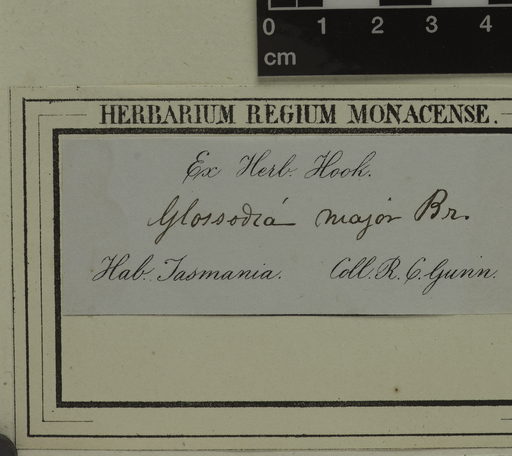 0 1 2 3 4
cm
HERBARIUM REGIUM MONACENSE.
Ex Herb. Hook.
Glossodia major Br.
Hab. Tasmania. Coll. R. C. Gunn.